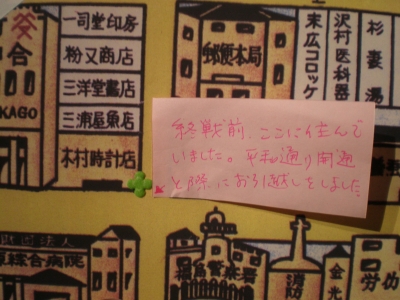 一司堂印房
粉又商店
三洋堂書店
三浦屋魚店
木村時計店
合
KAGO
郵便本局
末広コロッケ
沢村医科器
杉妻湯
終戦前、ここに住んで
いました。平和通り開通
と際にお引越しをしました
原綜合病院
福島警察署
消防
金光
労仂